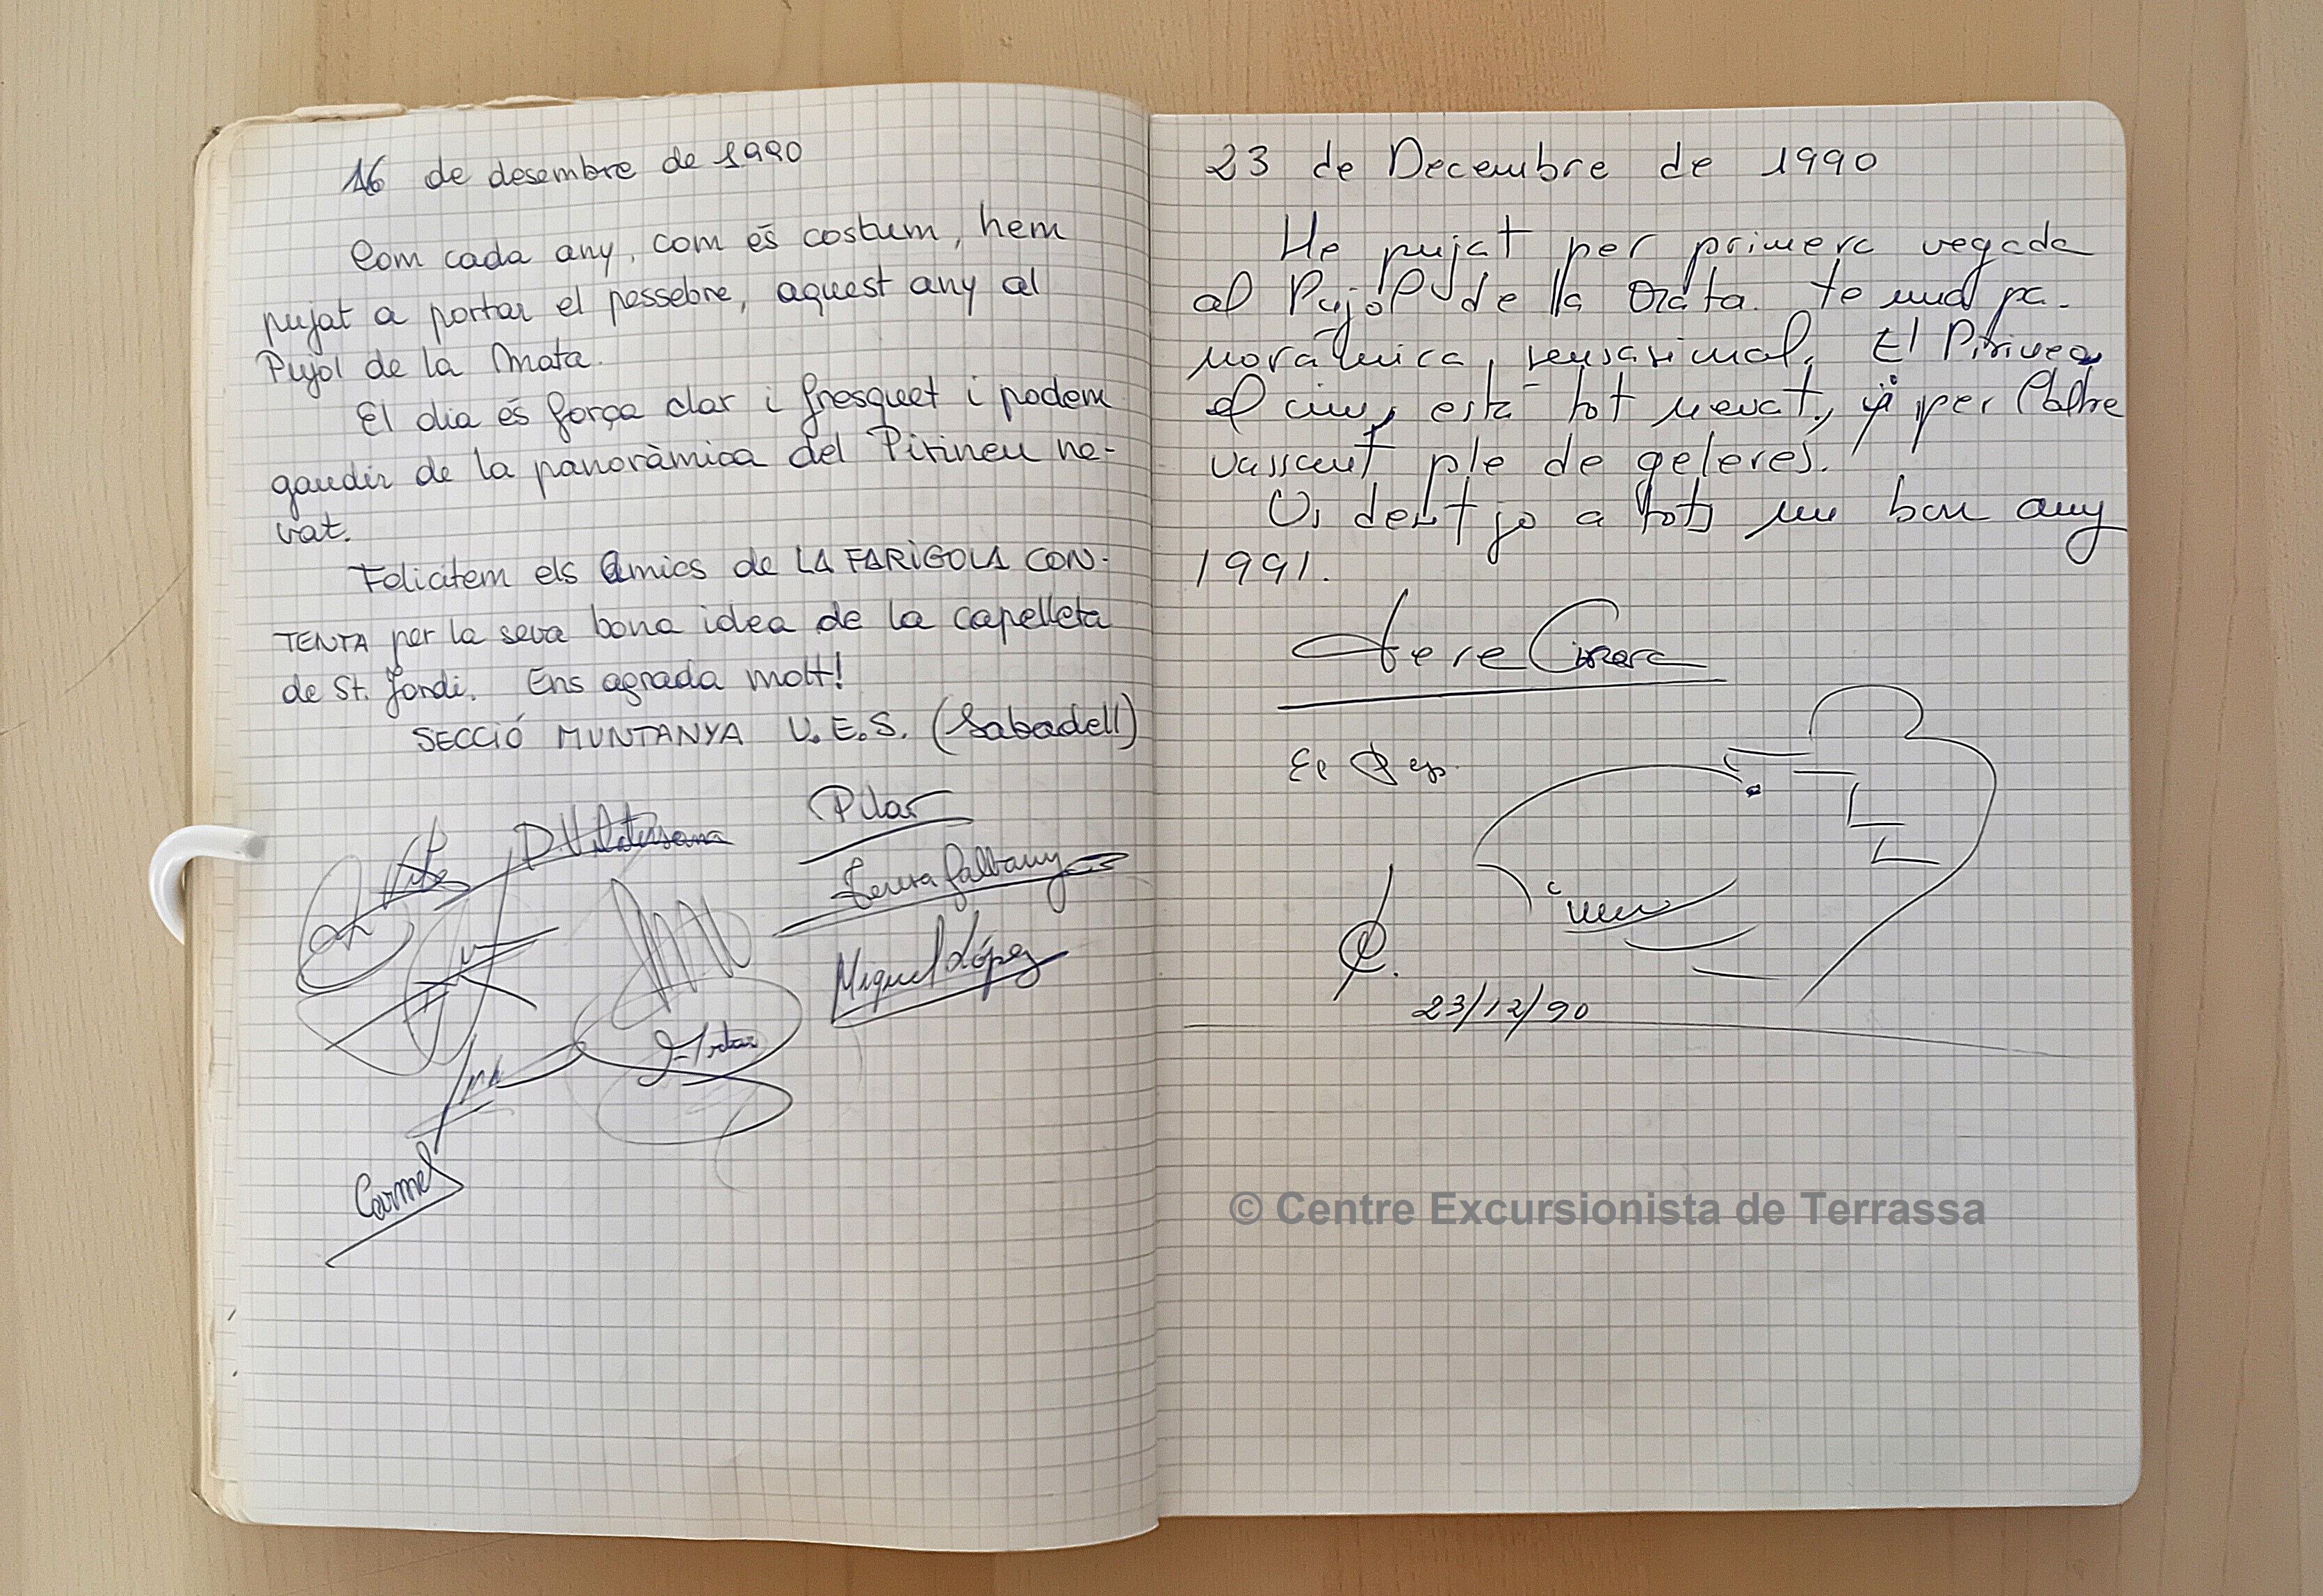 16 de desembre de 1990
Com cada any, com és costum, hem
pujat a portar el pessebre, aquest any al
Pujol de la Mata.
El dia és força clar i fresquet i podem
gaudir de la panoràmica del Pirineu ne-
vat.
Felicitem els Amics de LA FARIGOLA CON-
TENTA per la seva bona idea de la capelleta
de St. Jordi. Ens agrada molt!
SECCIÓ MUNTANYA U.E.S. (Sabadell)
Pilar
Miquel López
Carmel
23 de Decembre de 1990
He pujat per primera vegada
al Pujol de la Mata. Te una pa-
noràmica, sensasional, El Pirineo,
el cim, està tot nevat, i per l'altre
vassant ple de geleres.
Os desitjo a tots un bon any
1991.
23/12/90
© Centre Excursionista de Terrassa